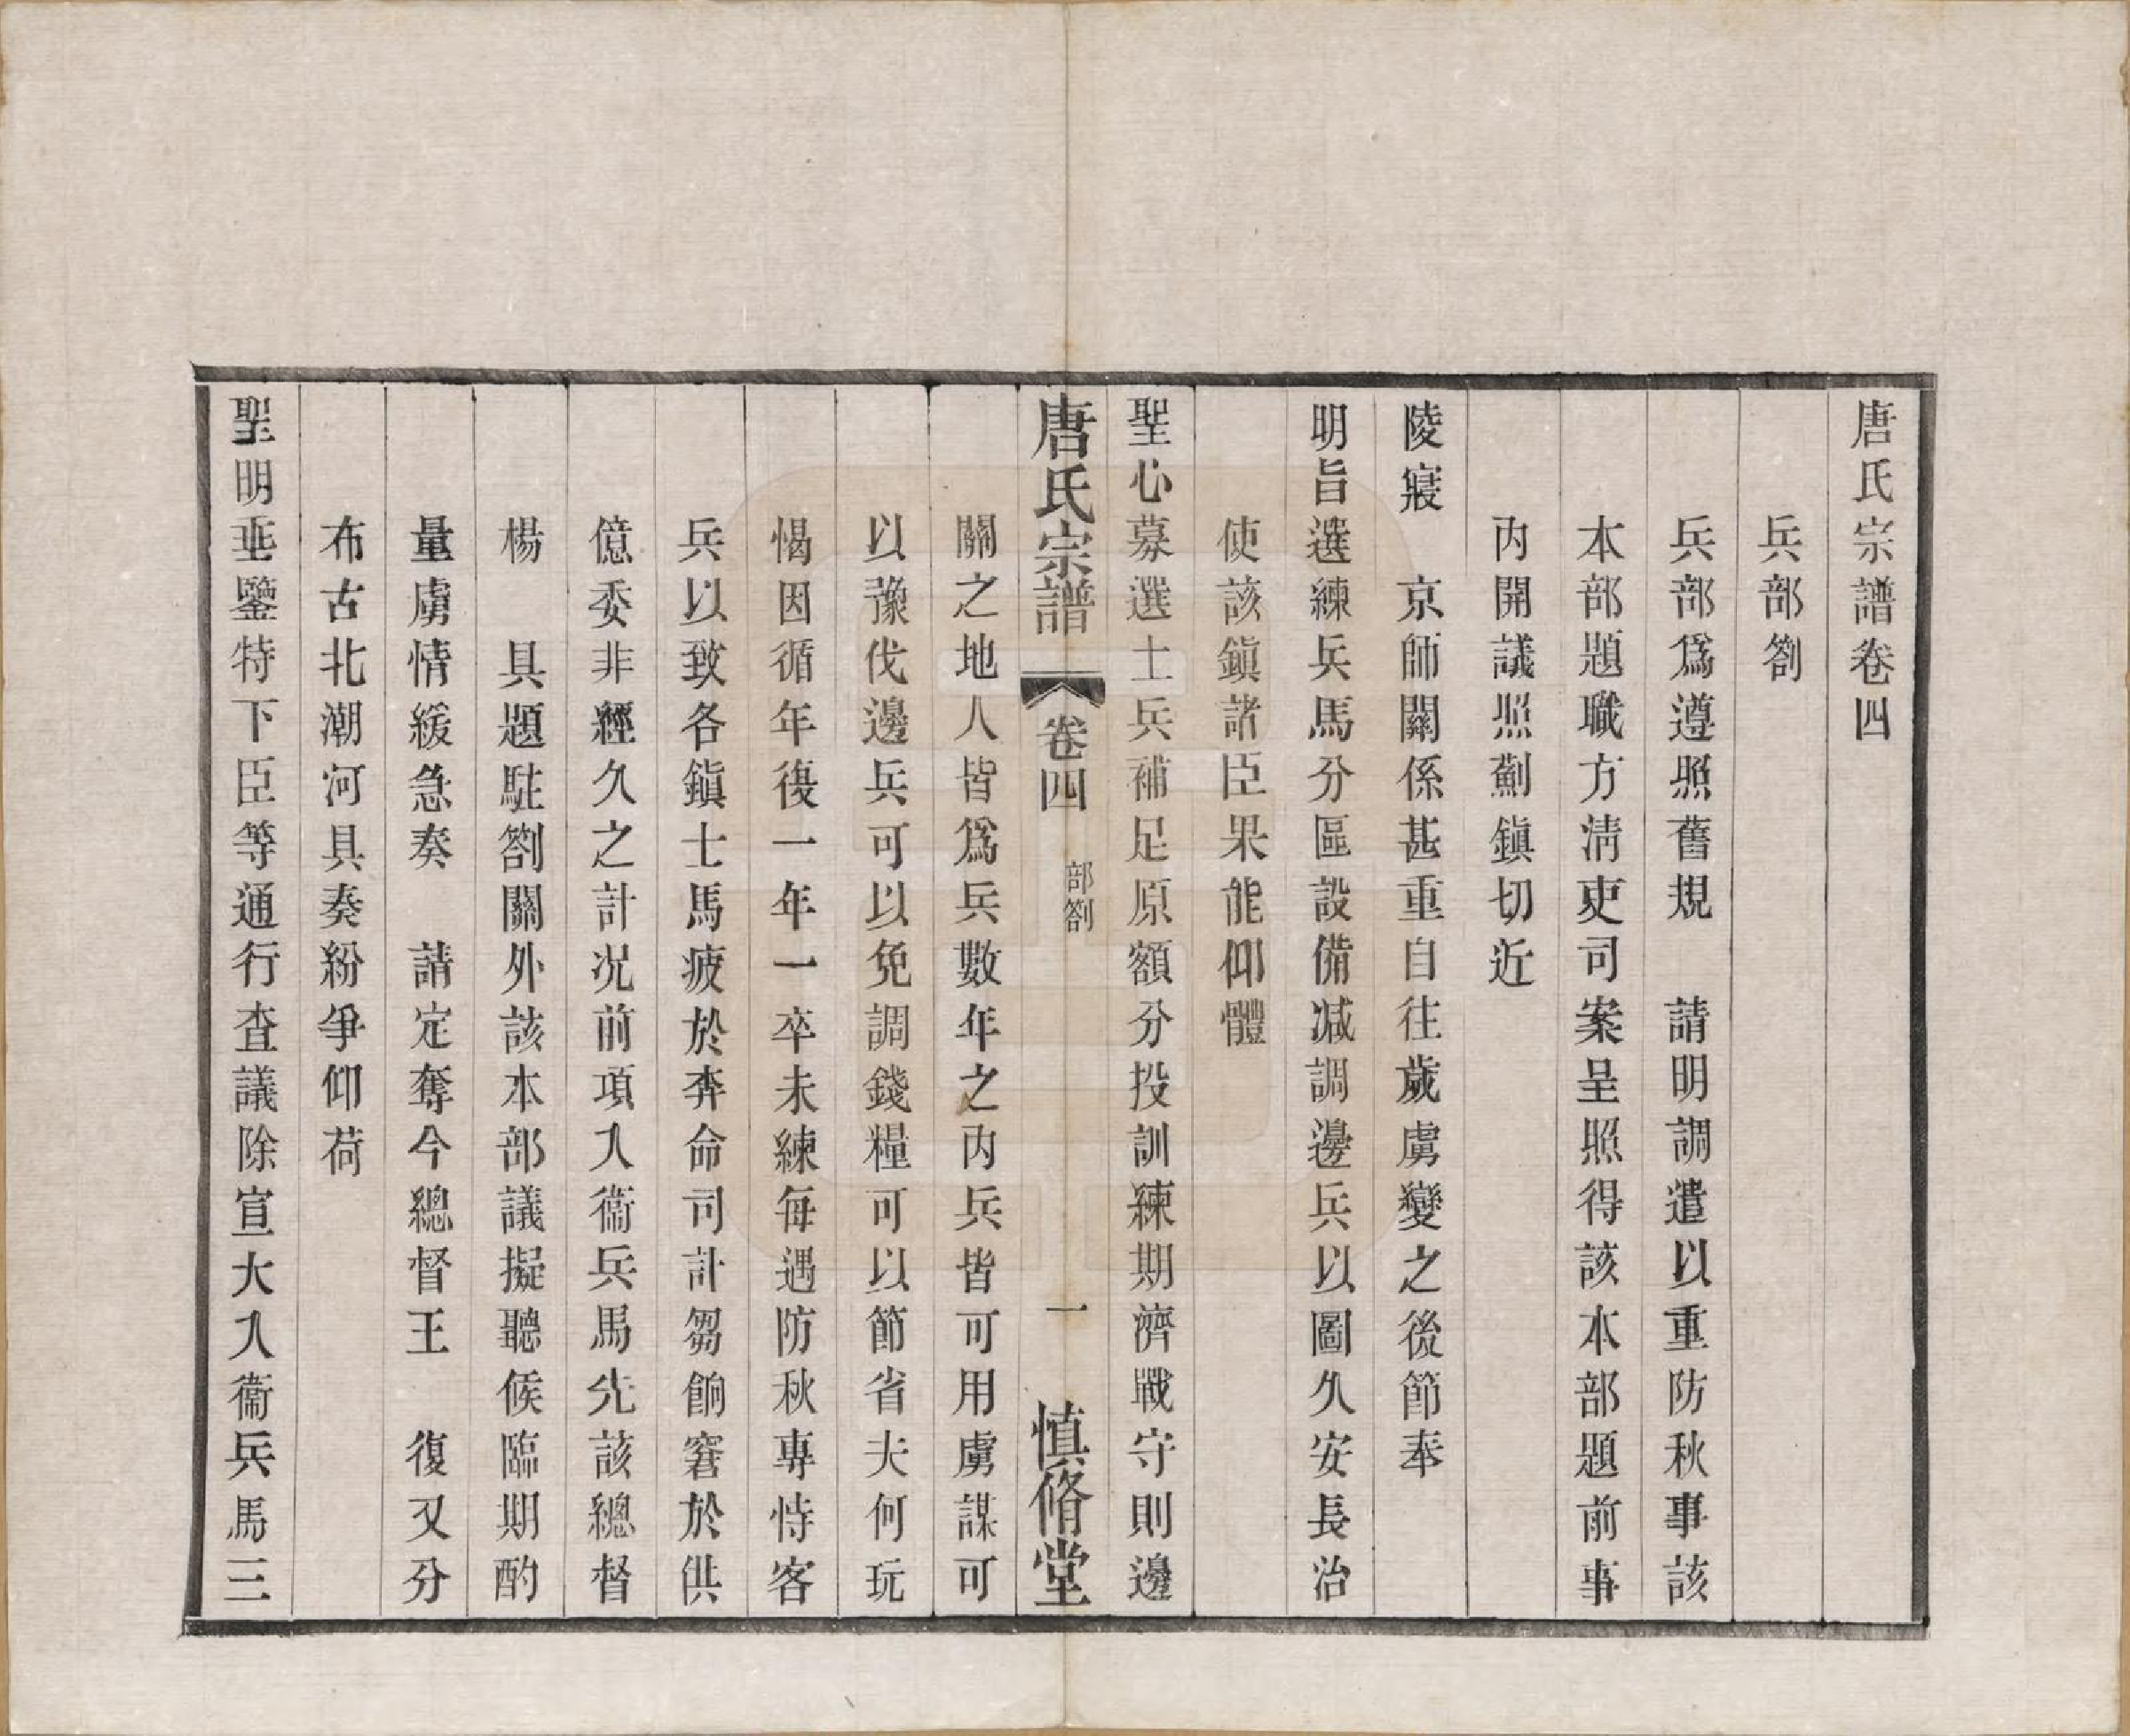 唐氏宗譜卷四
兵部劄
兵部爲遵照舊規　請明調遣以重防秋事該
本部題職方淸吏司案呈照得該本部題前事
內開議照薊鎭切近
陵寢　京師關係甚重自往歲虜變之後節奉
明旨選練兵馬分區設備减調邊兵以圖久安長治
使該鎭諸臣果能仰體
聖心募選士兵補足原額分投訓練期濟戰守則邊
唐氏宗譜　卷四　部劄　一　愼脩堂
關之地人皆爲兵數年之內兵皆可用虜謀可
以豫伐邊兵可以免調錢糧可以節省夫何玩
愒因循年復一年一卒未練每遇防秋專恃客
兵以致各鎭士馬疲於奔命司計芻餉窘於供
億委非經久之計況前項入衞兵馬先該總督
楊　具題駐劄關外該本部議擬聽候臨期酌
量虜情緩急奏　請定奪今總督王　復又分
布古北潮河具奏紛爭仰荷
聖明垂鑒特下臣等通行查議除宣大入衞兵馬三